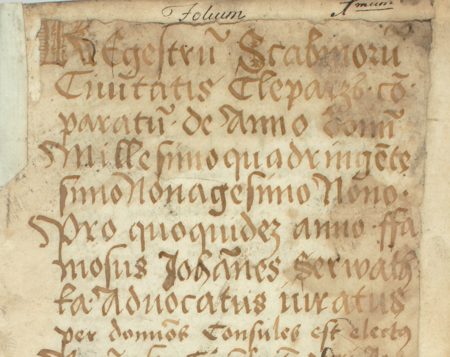 Folium 1mum
REgestrũ Scabinorũ
Ciuitatis Cleparzs. cõ
paratũ. de Anno domĩ
Millesimo quadringẽte
simo Nonagesimo Nono.
Pro quoquidez anno ffa
mosus Johãnes Serwath
ka Aduocatus iuratus
per domiõs Consules est electus